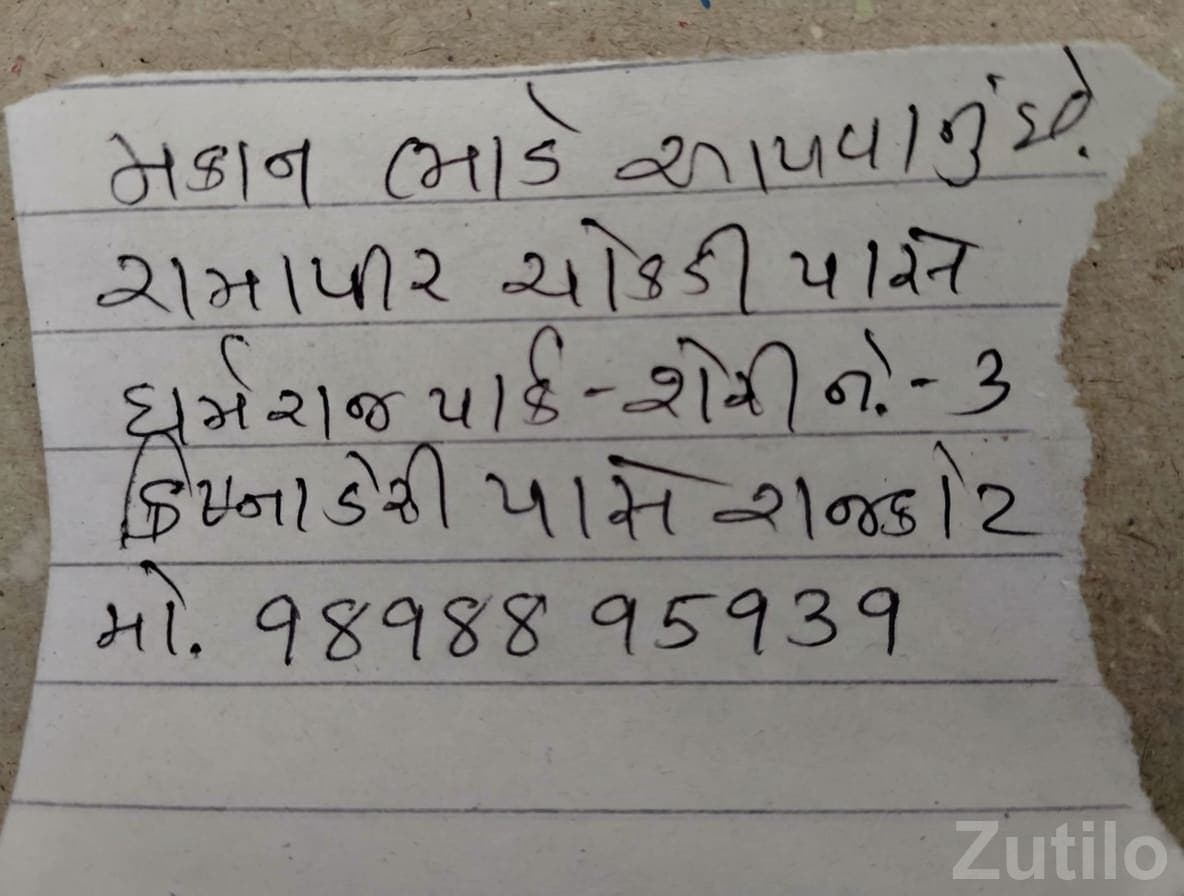 મકાન ભાડે આપવાનું છે.
રામાપીર ચોકડી પાસે
ધર્મરાજ પાર્ક - શેરી નં. - 3
ક્રિષ્ના ડેરી પાસે રાજકોટ
મો. 98988 95939
Zutilo